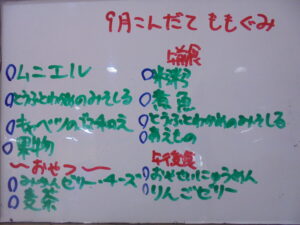 9月こんだて ももぐみ
ムニエル
とうふとわかめのみそしる
キャベツの
果物
〜おやつ〜
みかんゼリー・チーズ
麦茶
午前食
米粥
煮魚
とうふとわかめのみそしる
あえもの
午後食
おやさいにゅうめん
りんごゼリー